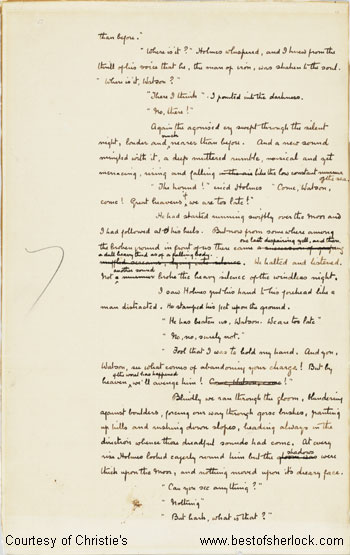 than before."
"Where is it?" Holmes whispered, and I knew from the
thrill of his voice that he, the man of iron, was shaken to the soul.
"Where is it, Watson?"
"There I think" I pointed into the darkness.
"No, there!"
Again the agonised cry swept through the silent
much
night, louder and nearer than before. And a new sound
mingled with it, a deep muttered rumble, musical and yet
menacing, rising and falling like the low constant murmur
of the sea.
"The hound!" cried Holmes "Come, Watson,
come! Great heavens, if we are too late!"
He had started running swiftly over the moor and
I had followed at his heels. But now from somewhere among
one last despairing yell, and then
the broken ground in front of us there came a
a dull heavy thud as of a falling body.
He halted and listened.
another sound
Not a murmur broke the heavy silence of the windless night.
I saw Holmes put his hand to his forehead like a
man distracted. He stamped his feet upon the ground.
"He has beaten us, Watson. We are too late"
"No, no, surely not."
"Fool that I was to hold my hand. And you,
Watson, see what comes of abandoning your charge! But by
if the worst has happened
heaven, we'll avenge him!
Blindly we ran through the gloom, blundering
against boulders, forcing our way through gorse bushes, panting
up hills and rushing down slopes, heading always in the
direction whence those dreadful sounds had come. At every
shadows
rise Holmes looked eagerly round him but the were
thick upon the moor, and nothing moved upon its dreary face.
"Can you see anything?"
"Nothing"
"But hark, what is that?"
Courtesy of Christie's www.bestofsherlock.com